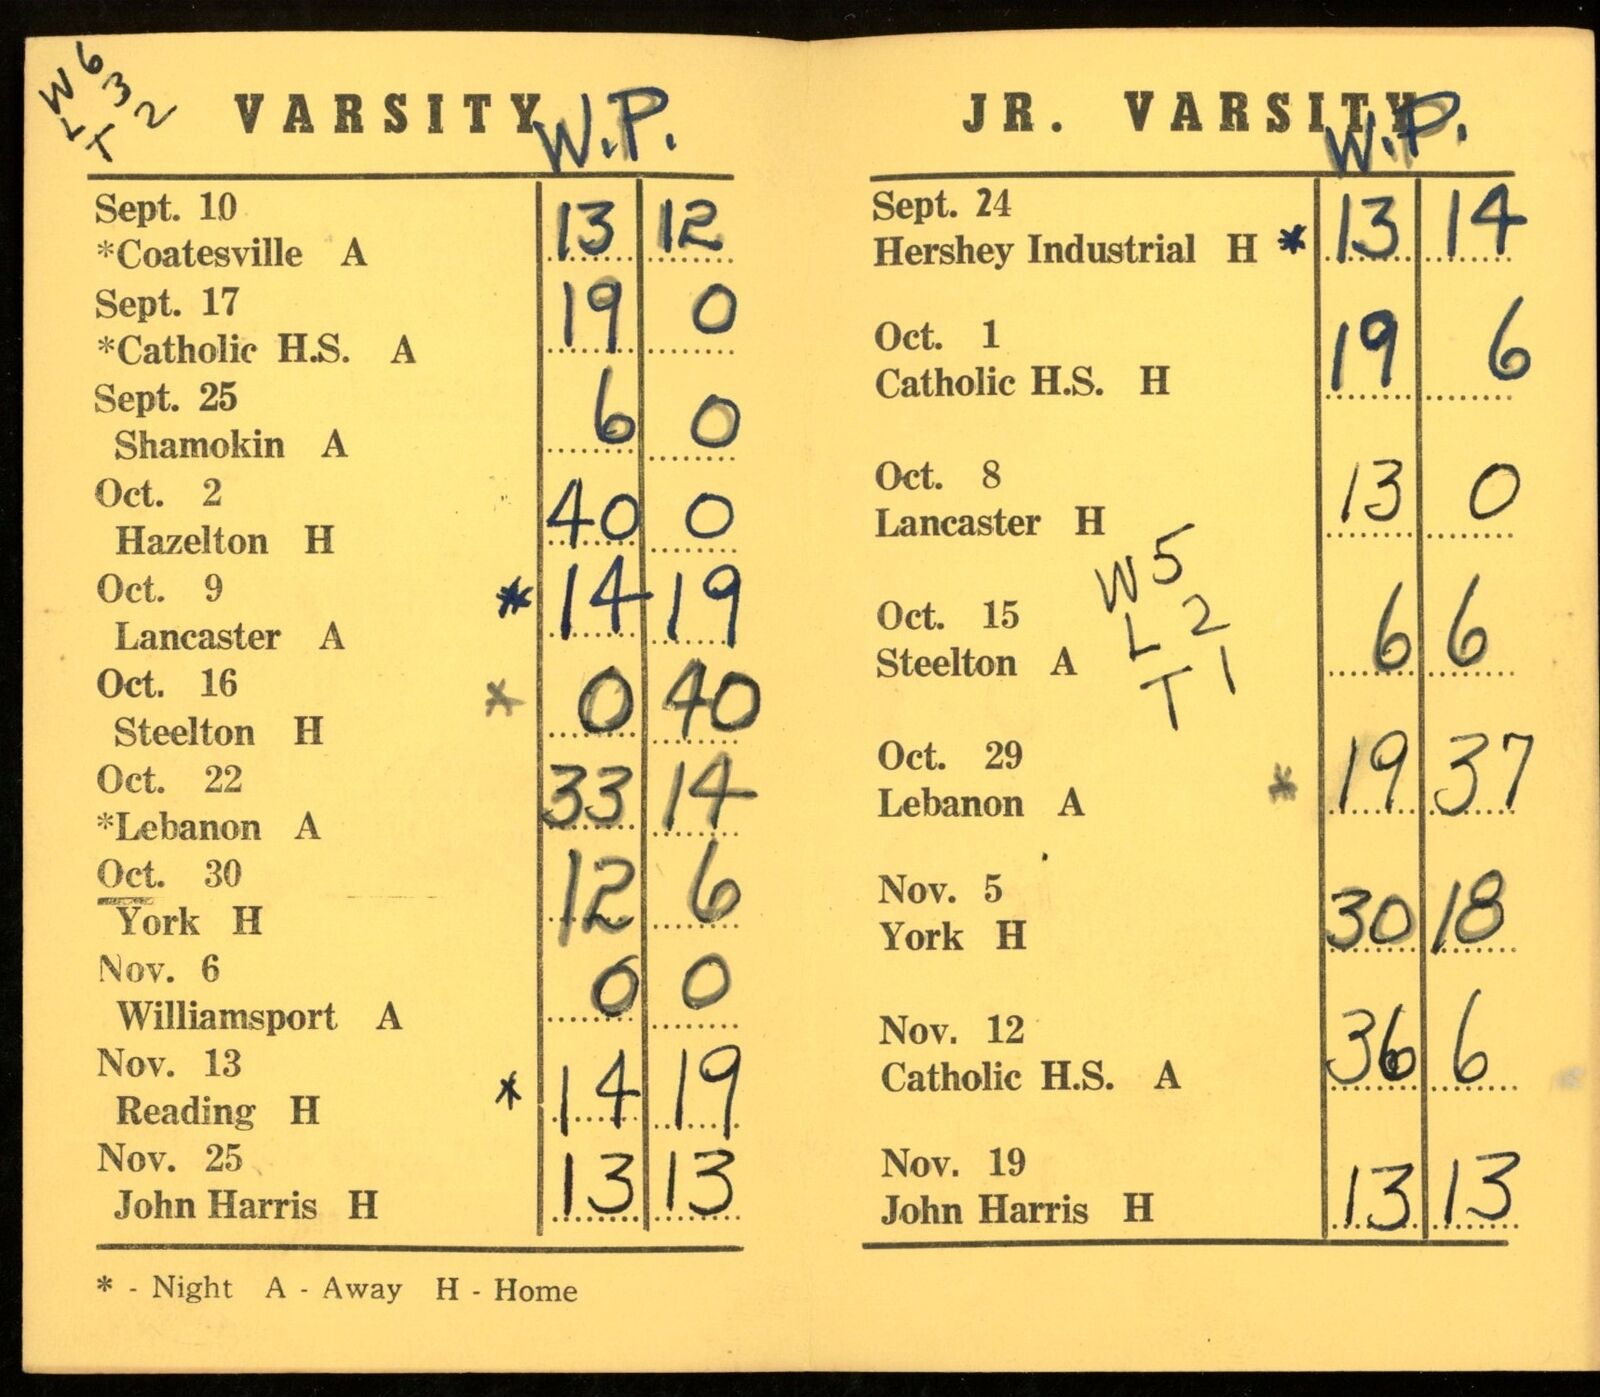 W 6
L 3
T 2
VARSITY W.P.
Sept. 10
*Coatesville A 13 12
Sept. 17
*Catholic H.S. A 19 0
Sept. 25
Shamokin A 6 0
Oct. 2
Hazelton H 40 0
Oct. 9
Lancaster A * 14 19
Oct. 16
Steelton H * 0 40
Oct. 22
*Lebanon A 33 14
Oct. 30
York H 12 6
Nov. 6
Williamsport A 0 0
Nov. 13
Reading H * 14 19
Nov. 25
John Harris H 13 13
* - Night A - Away H - Home
JR. VARSITY W.P.
Sept. 24
Hershey Industrial H * 13 14
Oct. 1
Catholic H.S. H 19 6
Oct. 8
Lancaster H 13 0
W 5
L 2
T 1
Oct. 15
Steelton A 6 6
Oct. 29
Lebanon A * 19 37
Nov. 5
York H 30 18
Nov. 12
Catholic H.S. A 36 6
Nov. 19
John Harris H 13 13